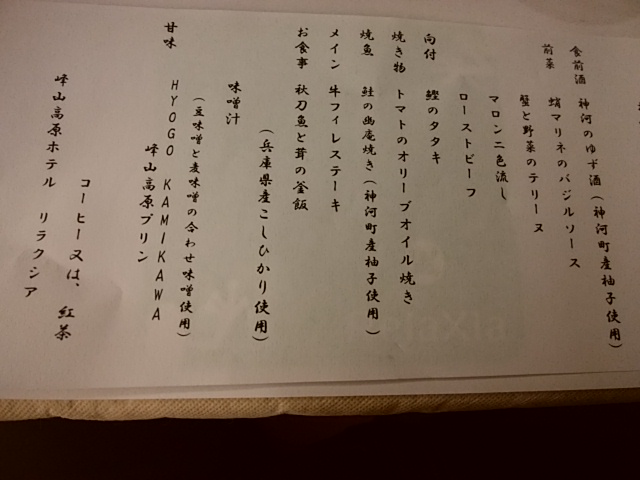 食前酒 神河のゆず酒(神河町産柚子使用)
前菜 蛸マリネのバジルソース
蟹と野菜のテリーヌ
マロン二色流し
ローストビーフ
向付 鰹のタタキ
焼き物 トマトのオリーブオイル焼き
焼魚 鮭の幽庵焼き(神河町産柚子使用)
メイン 牛フィレステーキ
お食事 秋刀魚と茸の釜飯
(兵庫県産こしひかり使用)
味噌汁
(豆味噌と麦味噌の合わせ味噌使用)
甘味 HYOGO KAMIKAWA
峰山高原プリン
コーヒー又は、紅茶
峰山高原ホテル リラクシア